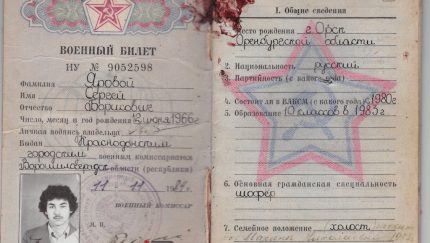 ВОЕННЫЙ БИЛЕТ
НУ № 9052598
Фамилия Яровой
Имя Сергей
Отчество Борисович
Число, месяц и год рождения 1966г
Личная подпись владельца
Выдан Краснодонским
городским военным комиссариатом
Ворошиловградской области (республики)
ВОЕННЫЙ КОМИССАР
М. П.
I. Общие сведения
Место рождения г. Орск
Оренбургской области
2. Национальность русский
3. Партийность (с какого года)
4. Состоит ли в ВЛКСМ (с какого года) с 1980г
5. Образование 10 классов в 1983г
6. Основная гражданская специальность
шофёр
7. Семейное положение холост